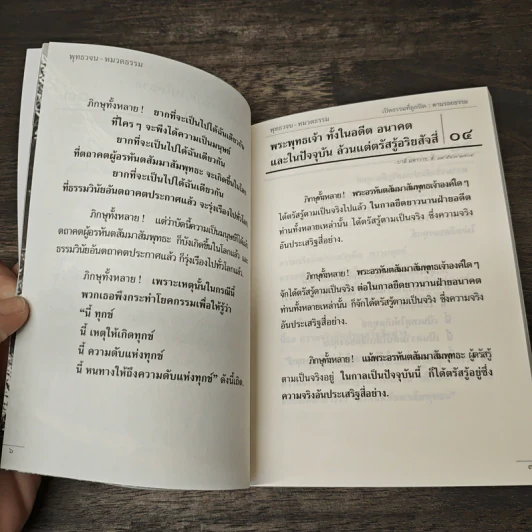 พุทธวจน - หมวดธรรม
ภิกษุทั้งหลาย ! ยากที่จะเป็นไปได้ฉันเดียวกัน
ที่ใครๆ จะพึงได้ความเป็นมนุษย์
ยากที่จะเป็นไปได้ฉันเดียวกัน
ที่ตถาคตผู้อรหันตสัมมาสัมพุทธะ จะเกิดขึ้นในโลก
ยากที่จะเป็นไปได้ฉันเดียวกัน
ที่ธรรมวินัยอันตถาคตประกาศแล้ว จะรุ่งเรืองไปทั่วโลก
ภิกษุทั้งหลาย ! แต่ว่าบัดนี้ความเป็นมนุษย์ก็ได้แล้ว
ตถาคตผู้อรหันตสัมมาสัมพุทธะ ก็บังเกิดขึ้นในโลกแล้ว และ
ธรรมวินัยอันตถาคตประกาศแล้ว ก็รุ่งเรืองไปทั่วโลกแล้ว.
ภิกษุทั้งหลาย ! เพราะเหตุนั้นในกรณีนี้
พวกเธอพึงกระทำโยคกรรมเพื่อให้รู้ว่า
“นี้ ทุกข์
นี้ เหตุให้เกิดทุกข์
นี้ ความดับแห่งทุกข์
นี้ หนทางให้ถึงความดับแห่งทุกข์” ดังนี้เถิด.
๖
พุทธวจน - หมวดธรรม
เปิดธรรมที่ถูกปิด : ตามรอยธรรม
พระพุทธเจ้า ทั้งในอดีต อนาคต
และในปัจจุบัน ล้วนแต่ตรัสรู้อริยสัจสี่ ๐๔
ภิกษุทั้งหลาย ! พระอรหันตสัมมาสัมพุทธเจ้าองค์ใดๆ
ได้ตรัสรู้ตามเป็นจริงไปแล้ว ในกาลยืดยาวนานฝ่ายอดีต
ท่านทั้งหลายเหล่านั้น ได้ตรัสรู้ตามเป็นจริง ซึ่งความจริง
อันประเสริฐสี่อย่าง.
ภิกษุทั้งหลาย ! พระอรหันตสัมมาสัมพุทธเจ้าองค์ใดๆ
จักได้ตรัสรู้ตามเป็นจริง ต่อไปในกาลยืดยาวนานฝ่ายอนาคต
ท่านทั้งหลายเหล่านั้น ก็จักได้ตรัสรู้ตามเป็นจริง ซึ่งความจริง
อันประเสริฐสี่อย่าง.
ภิกษุทั้งหลาย ! แม้พระอรหันตสัมมาสัมพุทธะ ผู้ตรัสรู้
ตามเป็นจริงอยู่ ในกาลเป็นปัจจุบันนี้ ก็ได้ตรัสรู้อยู่ซึ่ง
ความจริงอันประเสริฐสี่อย่าง.